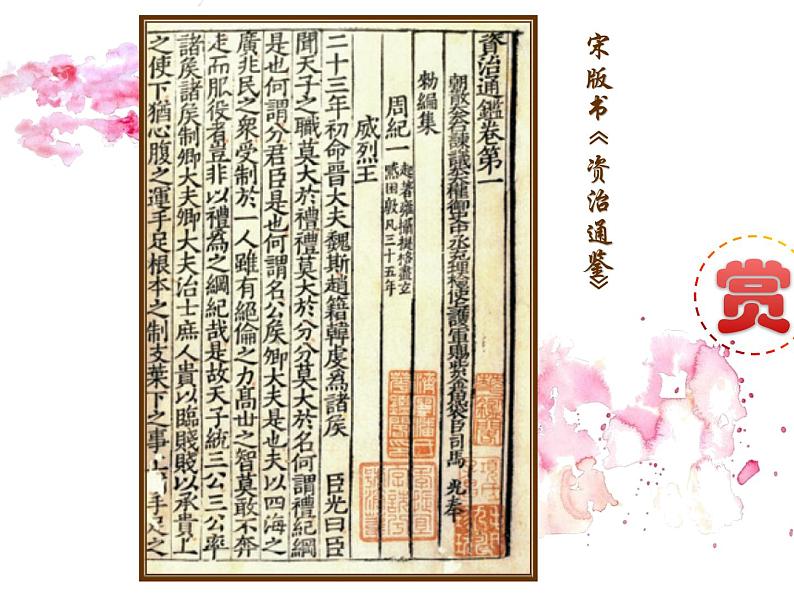 宋版书《资治通鉴》
赏
資治通鑑卷第一
朝散大夫右諫議大夫權御史中丞充理檢使上護軍賜紫金魚袋臣司馬 光奉
勑編集
周紀一 起著雍攝提格盡玄
黓困敦凡三十五年
威烈王
二十三年初命晉大夫魏斯趙籍韓虔為諸侯 臣光曰臣
聞天子之職莫大於禮禮莫大於分分莫大於名何謂禮紀綱
是也何謂分君臣是也何謂名公侯卿大夫是也夫以四海之
廣兆民之衆受制於一人雖有絕倫之力高世之智莫敢不奔
走而服役者豈非以禮為之綱紀哉是故天子統三公三公率
諸侯諸侯制卿大夫卿大夫治士庶人貴以臨賤賤以承貴上
之使下猶心腹之運手足根本之制支葉下之事上手足之